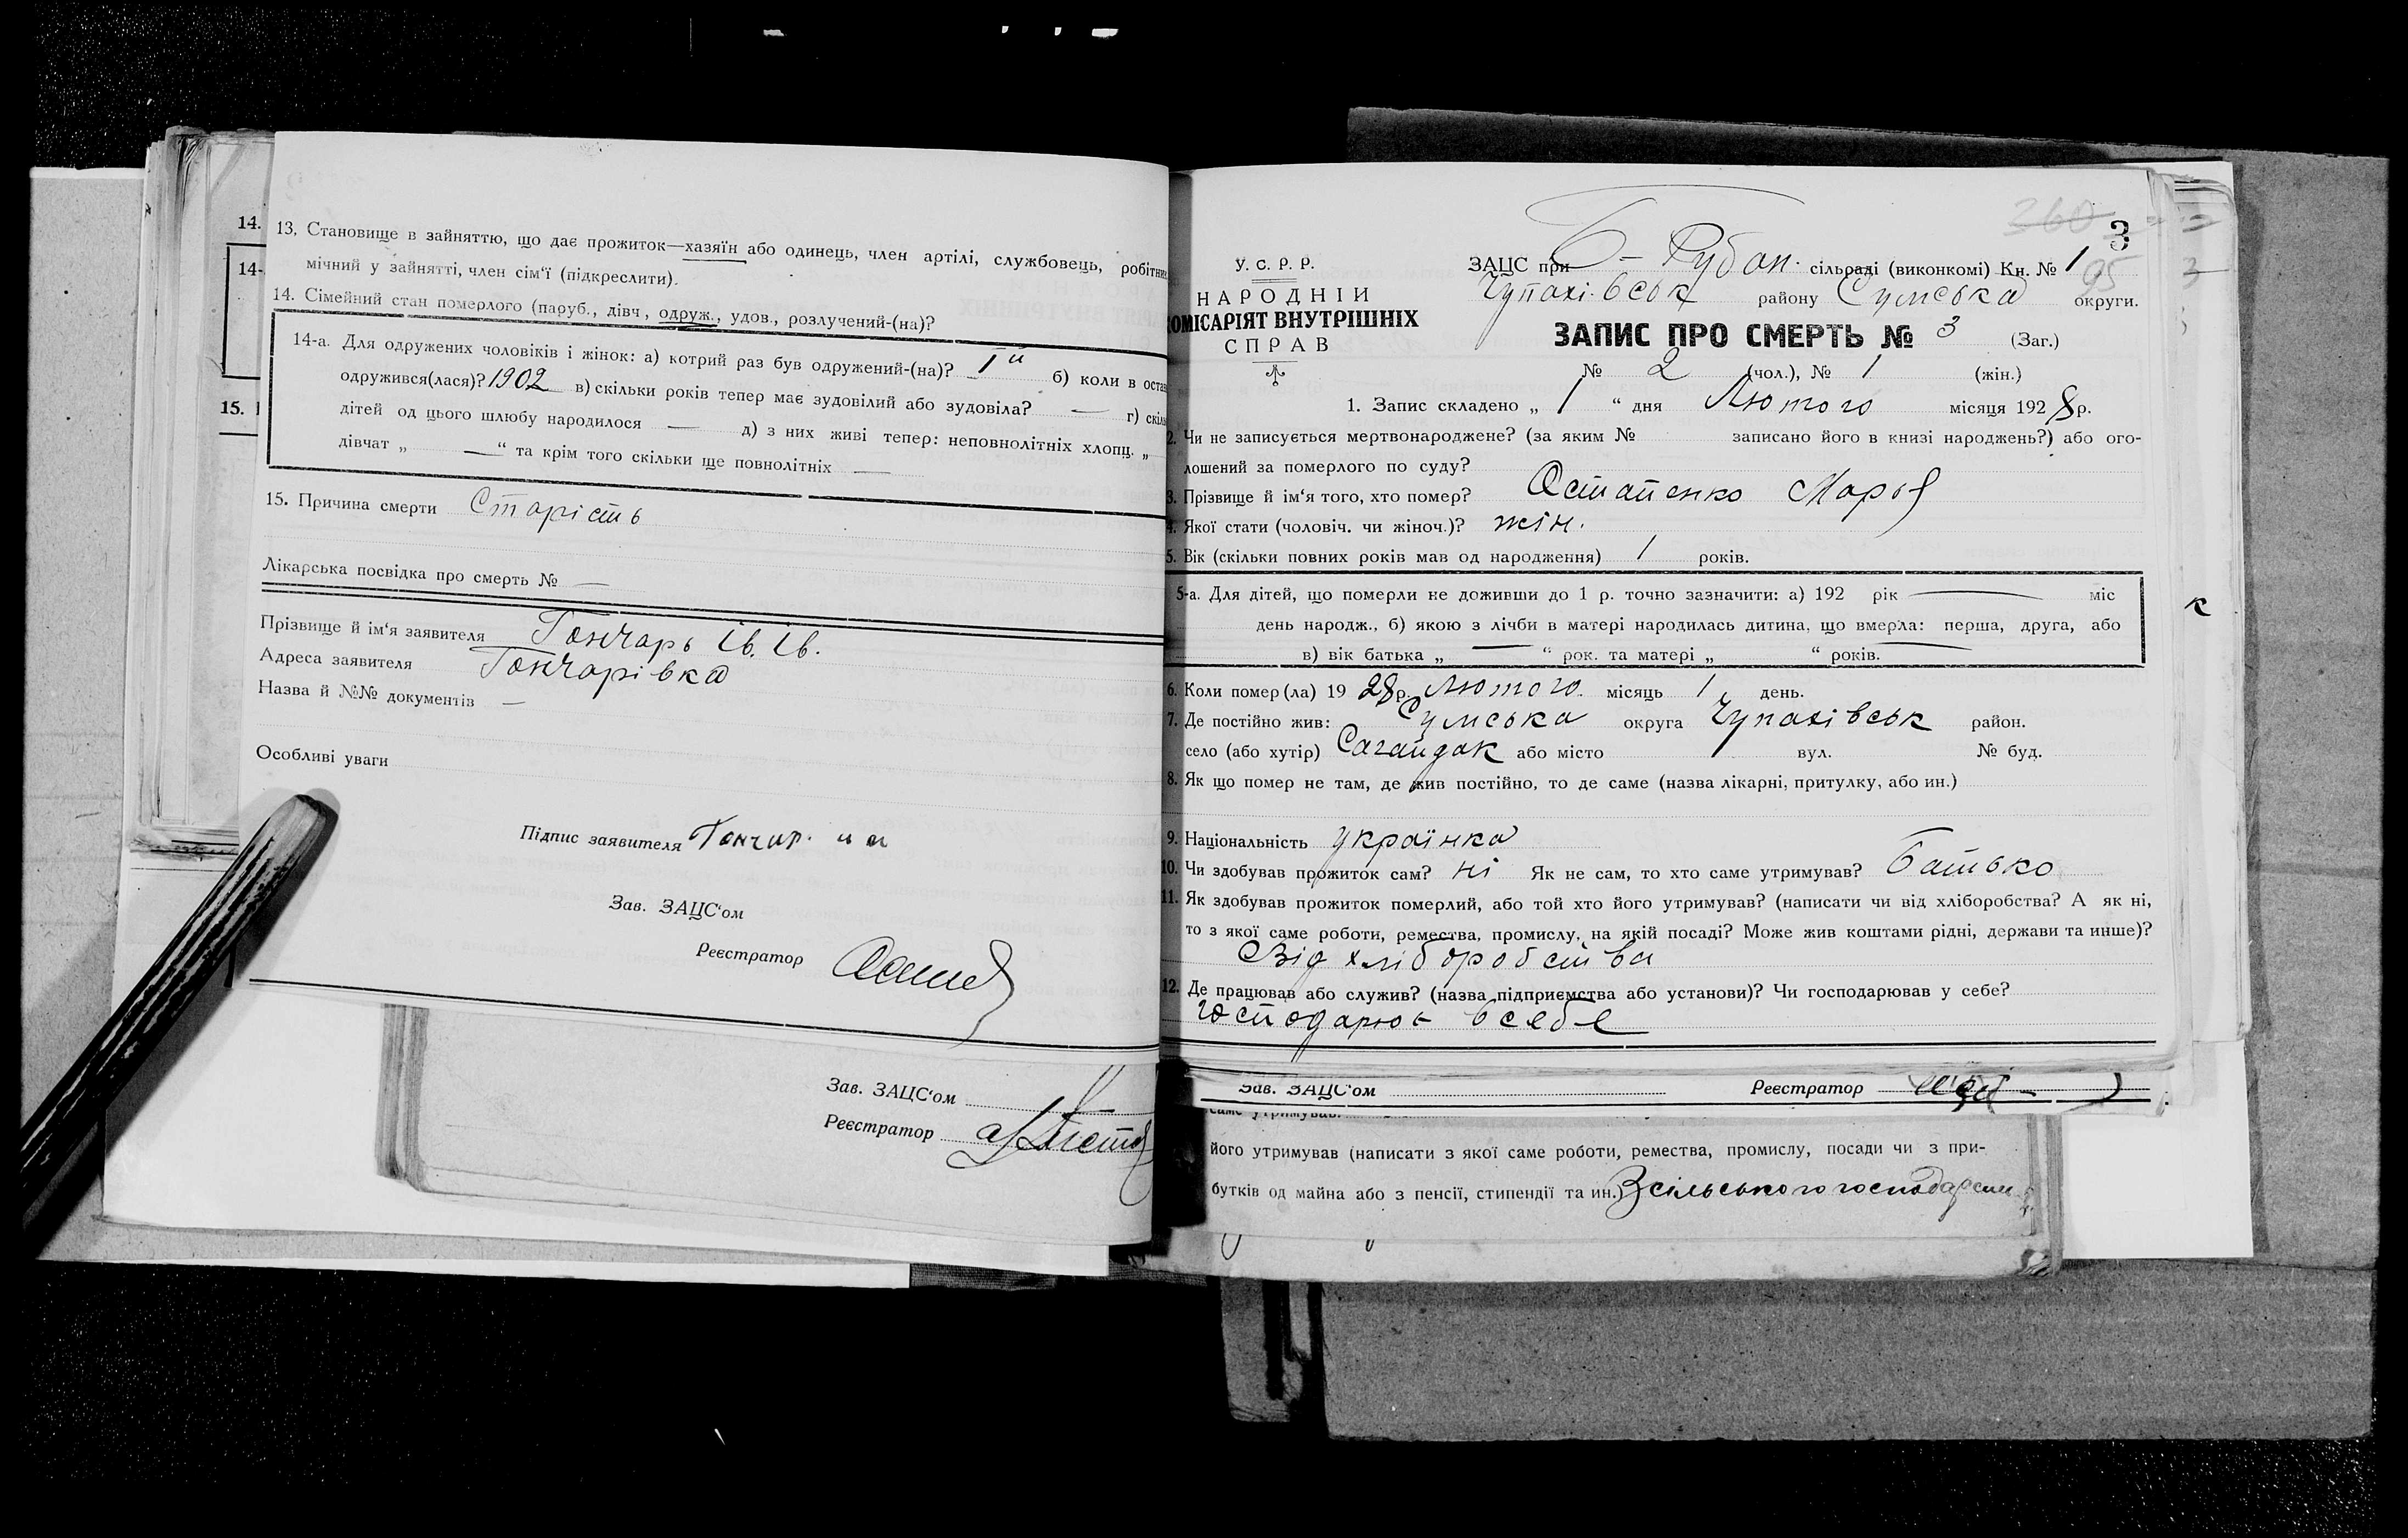 14.
14-
15.
13. Становище в зайняттю, що дає прожиток—хазяїн або одинець, член артілі, службовець, робітник
мічний у зайнятті, член сім'ї (підкреслити).
14. Сімейний стан померлого (паруб., дівч, одруж., удов., розлучений-(на)?
14-а. Для одружених чоловіків і жінок: а) котрий раз був одружений-(на)? 1й б) коли в остан
одружився(лася)? 1902 в) скільки років тепер має зудовілий або зудовіла? — г) скіль
дітей од цього шлюбу народилося — д) з них живі тепер: неповнолітніх хлопц. „
дівчат „ — “ та крім того скільки ще повнолітніх —
15. Причина смерти Старість
Лікарська посвідка про смерть № —
Прізвище й ім'я заявителя Гончарь Ів. Ів.
Адреса заявителя Гончарівка
Назва й №№ документів —
Особливі уваги
Підпис заявителя Гончар. и и
Зав. ЗАЦС'ом
Реєстратор
Зав. ЗАЦС'ом
Реєстратор
260
3
95
У. С. Р. Р.
НАРОДНІЙ
КОМІСАРІЯТ ВНУТРІШНІХ
СПРАВ
ЗАЦС при Б-Рубан. сільраді (виконкомі) Кн. № 1
Чупахівськ району Сумська округи.
ЗАПИС ПРО СМЕРТЬ № 3 (Заг.)
№ 2 (чол.), № 1 (жін.)
1. Запис складено „ 1 “ дня Лютого місяця 1928 р.
2. Чи не записується мертвонароджене? (за яким № записано його в книзі народжень?) або ого-
лошений за померлого по суду?
3. Прізвище й ім'я того, хто помер? Остапенко Марья
4. Якої стати (чоловіч. чи жіноч.)? жін.
5. Вік (скільки повних років мав од народження) 1 років.
5-а. Для дітей, що померли не доживши до 1 р. точно зазначити: а) 192 рік — міс
день народж., б) якою з лічби в матері народилась дитина, що вмерла: перша, друга, або
в) вік батька „ — “ рок. та матері „ “ років.
6. Коли помер(ла) 19 28 р. Лютого місяць 1 день.
7. Де постійно жив: Сумська округа Чупахівськ район.
село (або хутір) Сагайдак або місто вул. № буд.
8. Як що помер не там, де жив постійно, то де саме (назва лікарні, притулку, або ин.)
9. Національність українка
10. Чи здобував прожиток сам? ні Як не сам, то хто саме утримував? Батько
11. Як здобував прожиток померлий, або той хто його утримував? (написати чи від хліборобства? А як ні,
то з якої саме роботи, ремества, промислу, на якій посаді? Може жив коштами рідні, держави та инше)?
Від хліборобства
12. Де працював або служив? (назва підприємства або установи)? Чи господарював у себе?
господарює в себе
Зав. ЗАЦС'ом Реєстратор
саме утримував.
його утримував (написати з якої саме роботи, ремества, промислу, посади чи з при-
бутків од майна або з пенсії, стипендії та ин.) З сільського господарств
3
к